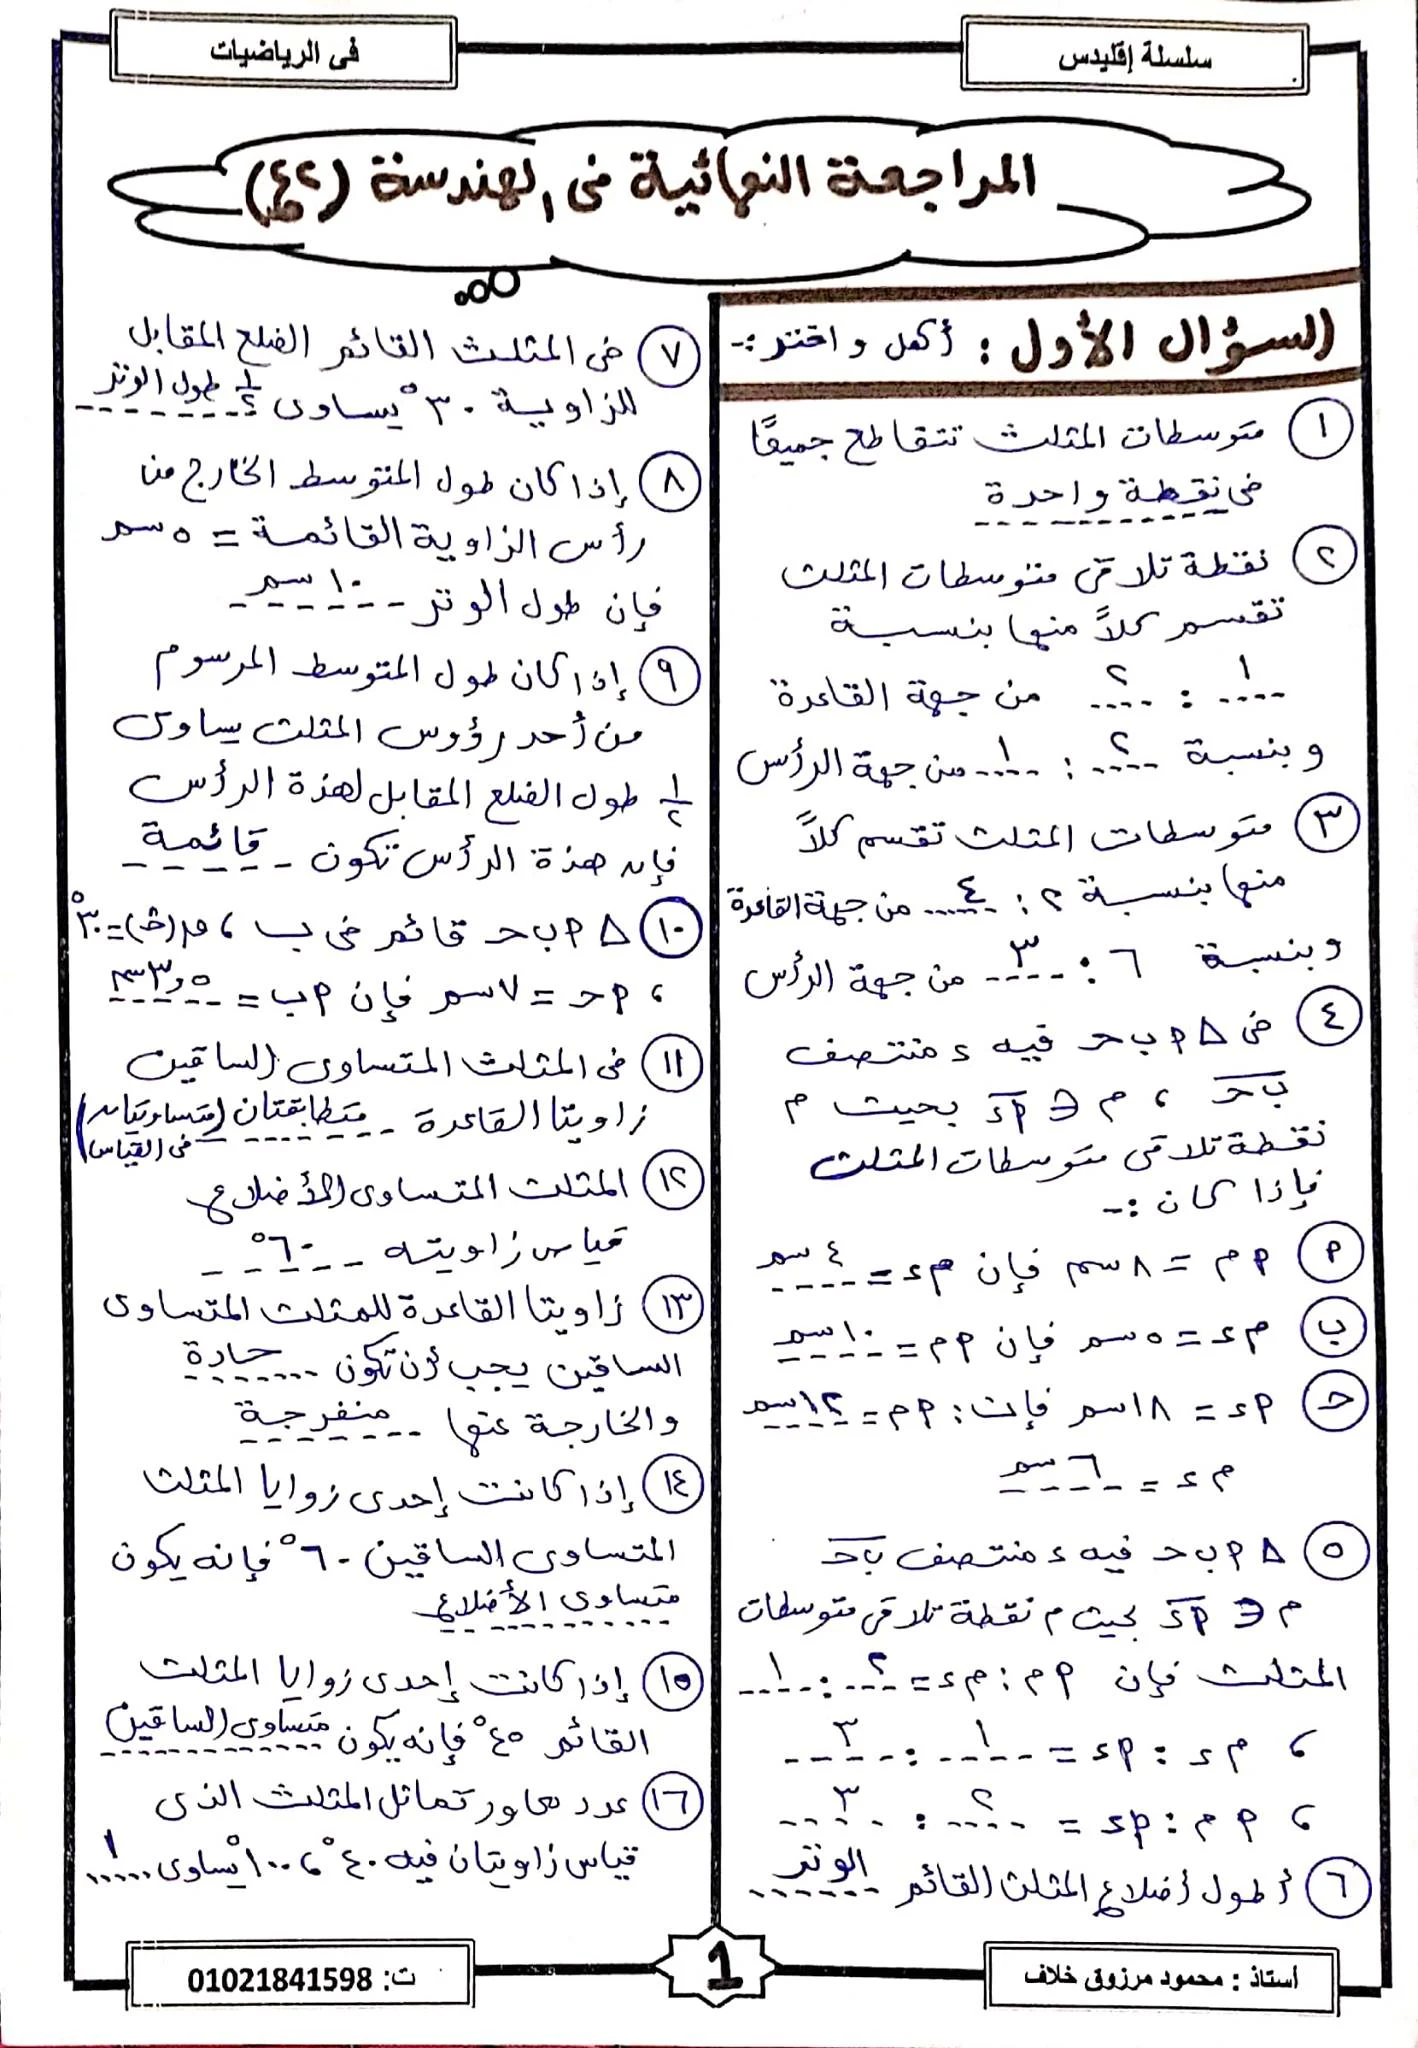 سلسلة إقليدس
فى الرياضيات
المراجعة النهائية فى الهندسة (٢ع)
السؤال الأول : أكمل و اختر :-
١ متوسطات المثلث تتقاطع جميعًا
فى نقطة واحدة
٢ نقطة تلاقى متوسطات المثلث
تقسم كلاً منها بنسبة
١ : ٢ من جهة القاعدة
وبنسبة ٢ : ١ من جهة الرأس
٣ متوسطات المثلث تقسم كلاً
منها بنسبة ٢ : ٤ من جهة القاعدة
وبنسبة ٦ : ٣ من جهة الرأس
٤ فى △ م ب حـ فيه ء منتصف
ب حـ ، م ∈ م ء بحيث م
نقطة تلاقى متوسطات المثلث
فإذا كان :-
م م م = ٨ سم فإن م ء = ٤ سم
ب م ء = ٥ سم فإن م م = ١٠ سم
حـ م ء = ١٨ سم فإن : م م = ١٢ سم
م ء = ٦ سم
٥ △ م ب حـ فيه ء منتصف ب حـ
م ∈ م ء بحيث م نقطة تلاقى متوسطات
المثلث فإن م م : م ء = ٢ : ١
، م ء : م ء = ١ : ٣
، م م : م ء = ٢ : ٣
٦ أطول أضلاع المثلث القائم الوتر
٧ فى المثلث القائم الضلع المقابل
للزاوية ٣٠° يساوى ١/٢ طول الوتر
٨ إذا كان طول المتوسط الخارج من
رأس الزاوية القائمة = ٥ سم
فإن طول الوتر ١٠ سم
٩ إذا كان طول المتوسط المرسوم
من أحد رؤوس المثلث يساوى
١/٢ طول الضلع المقابل لهذة الرأس
فإن هذة الرأس تكون قائمة
١٠ △ م ب حـ قائم فى ب ، م(حـ) = ٣٠°
، م حـ = ٧ سم فإن م ب = ٣,٥ سم
١١ فى المثلث المتساوى الساقين
زاويتا القاعدة متطابقتان (متساويتان
فى القياس)
١٢ المثلث المتساوى الأضلاع
قياس زاويته ٦٠°
١٣ زاويتا القاعدة للمثلث المتساوى
الساقين يجب أن تكون حادة
والخارجة عنها منفرجة
١٤ إذا كانت إحدى زوايا المثلث
المتساوى الساقين ٦٠° فإنه يكون
متساوى الأضلاع
١٥ إذا كانت إحدى زوايا المثلث
القائم ٤٥° فإنه يكون متساوى الساقين
١٦ عدد محاور تماثل المثلث الذى
قياس زاويتان فيه ٤٠° ، ١٠٠° يساوى ١
أستاذ : محمود مرزوق خلاف
1
ت: 01021841598